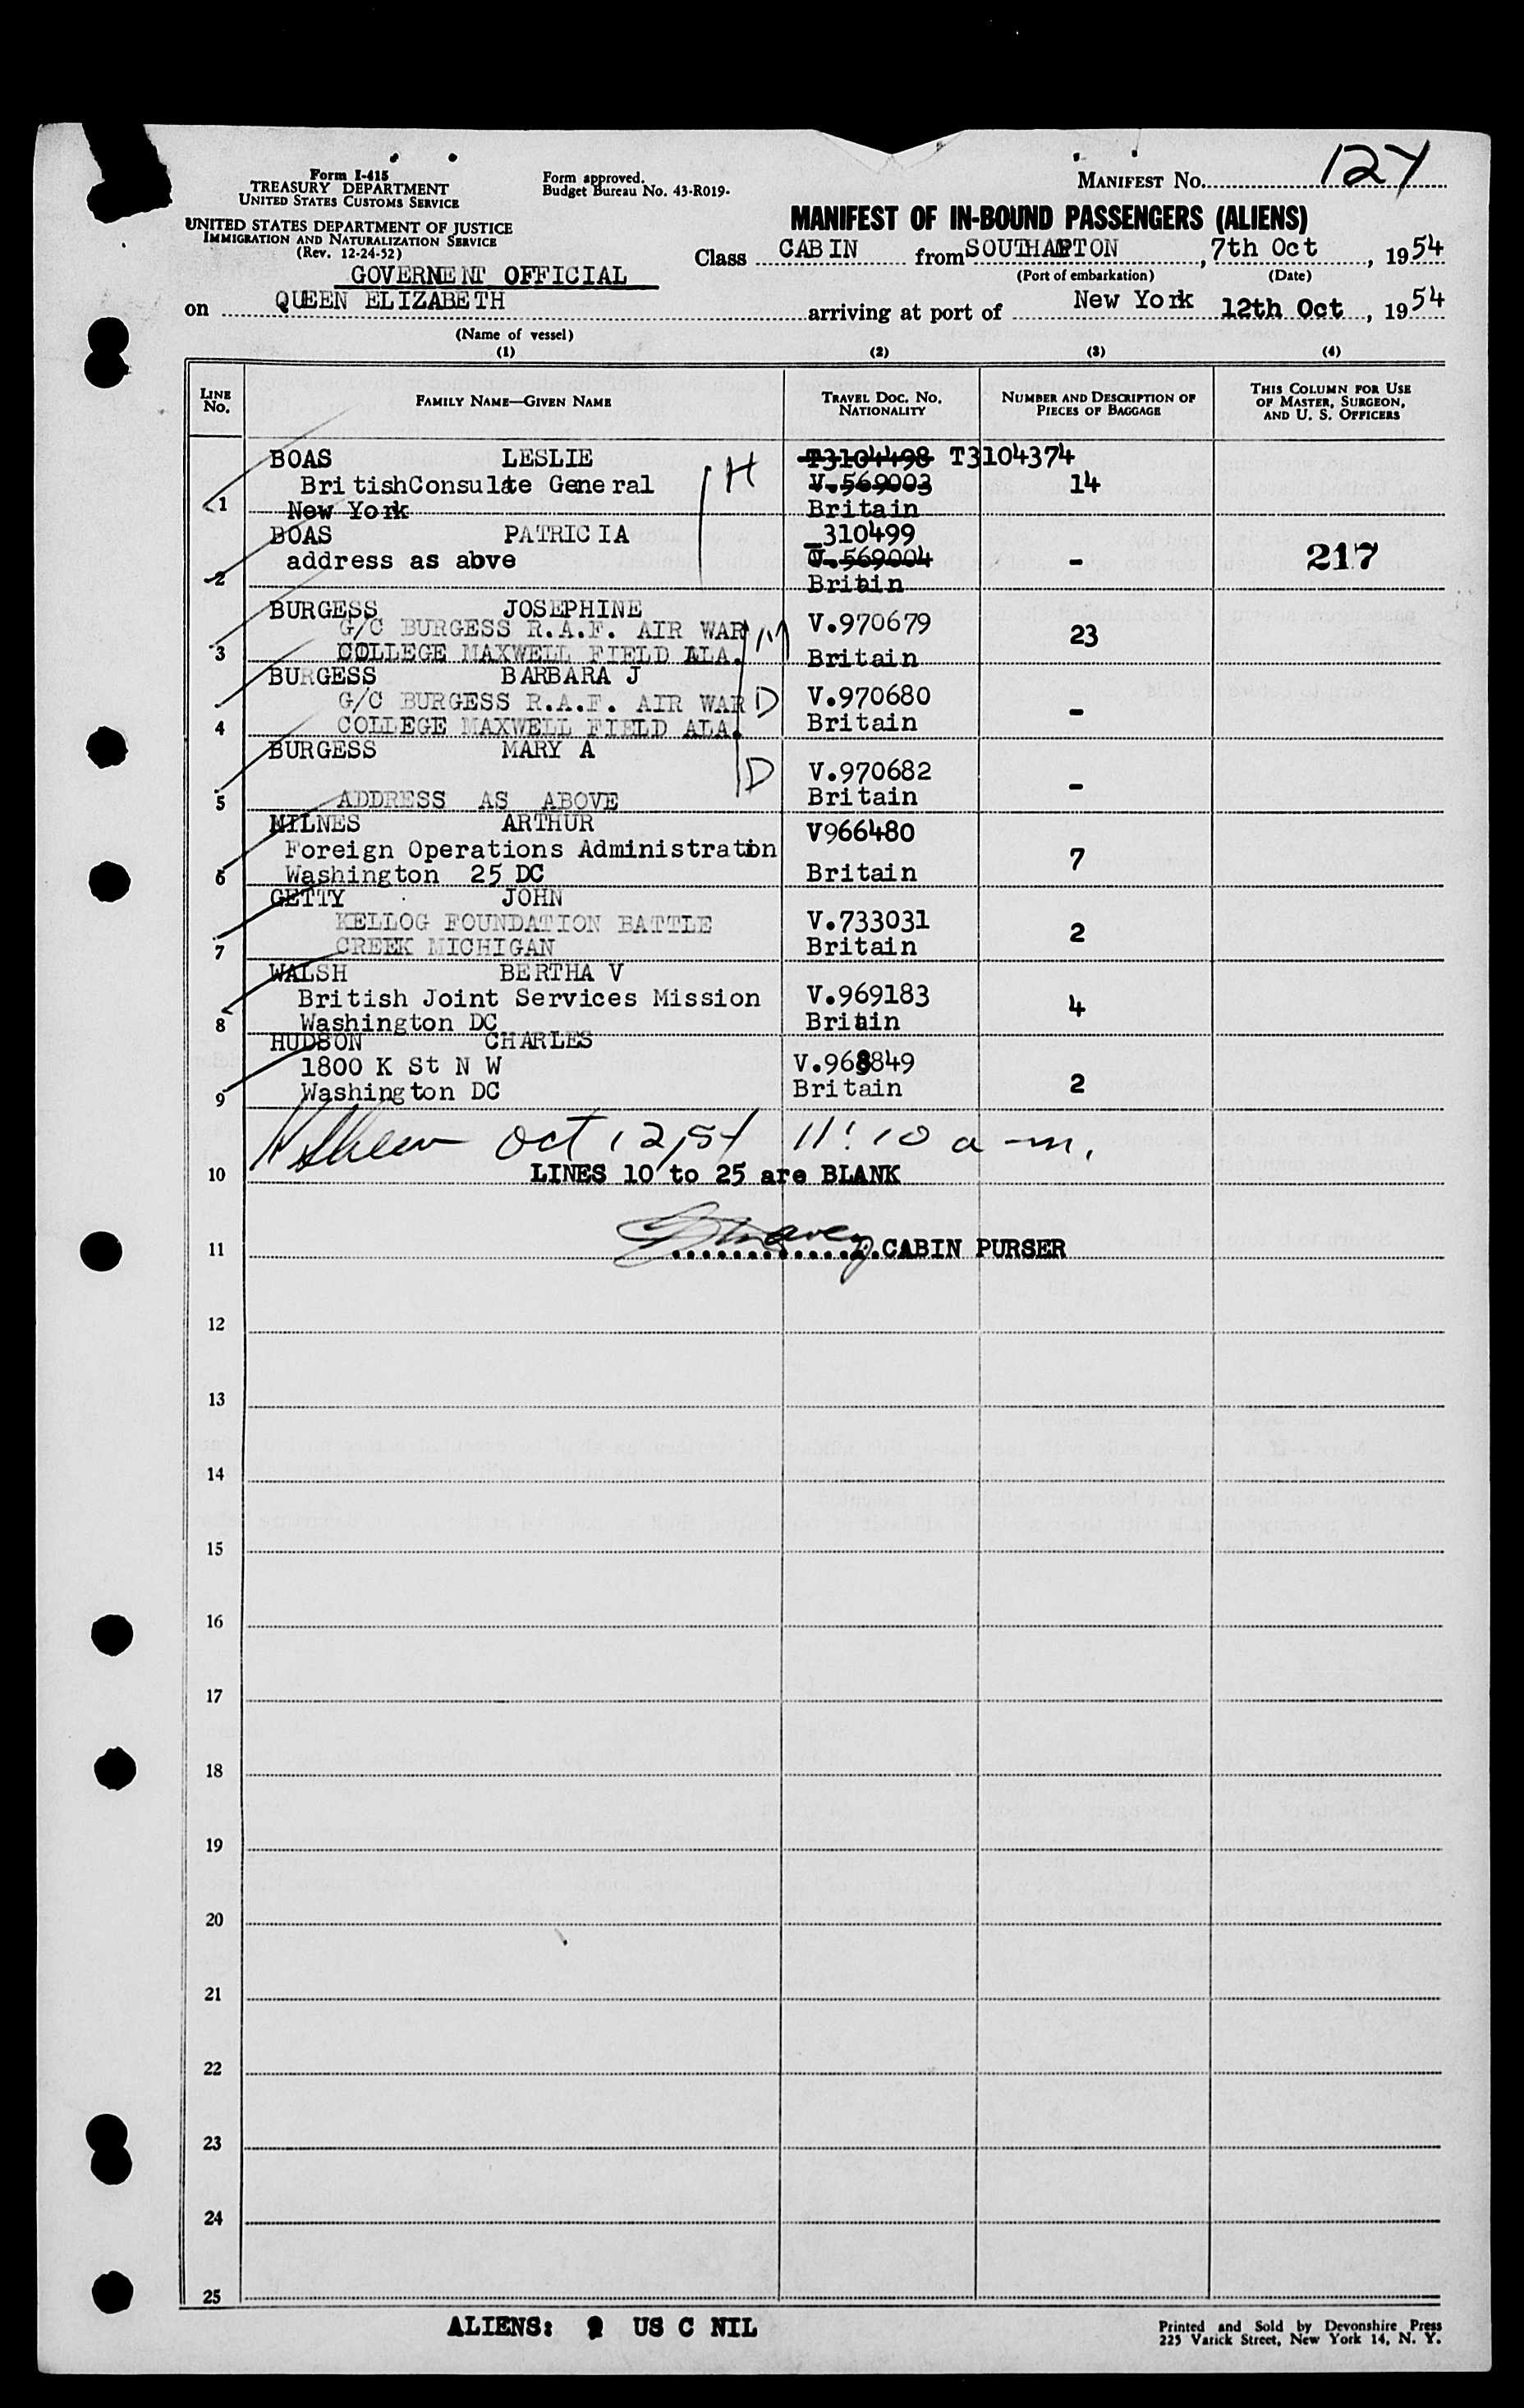 Form I-415
TREASURY DEPARTMENT
UNITED STATES CUSTOMS SERVICE
Form approved.
Budget Bureau No. 43-R019-
MANIFEST NO. 127
UNITED STATES DEPARTMENT OF JUSTICE
IMMIGRATION AND NATURALIZATION SERVICE
(Rev. 12-24-52)
MANIFEST OF IN-BOUND PASSENGERS (ALIENS)
GOVERNENT OFFICIAL
Class CABIN from SOUTHAMPTON, 7th Oct, 1954
(Port of embarkation) (Date)
on QUEEN ELIZABETH arriving at port of New York 12th Oct, 1954
(Name of vessel)
(1) (2) (3) (4)
LINE No. FAMILY NAME—GIVEN NAME TRAVEL DOC. NO. NATIONALITY NUMBER AND DESCRIPTION OF PIECES OF BAGGAGE THIS COLUMN FOR USE OF MASTER, SURGEON, AND U. S. OFFICERS
BOAS LESLIE T3104498 T3104374
BritishConsulate General H V.569003 14
1 New York Britain
BOAS PATRICIA 310499
address as abve V.569004 - 217
2 Britain
BURGESS JOSEPHINE V.970679
G/C BURGESS R.A.F. AIR WAR M 23
3 COLLEGE MAXWELL FIELD ALA. Britain
BURGESS BARBARA J V.970680
G/C BURGESS R.A.F. AIR WAR D -
4 COLLEGE MAXWELL FIELD ALA. Britain
BURGESS MARY A
D V.970682 -
5 ADDRESS AS ABOVE Britain
MILNES ARTHUR V966480
Foreign Operations Administration 7
6 Washington 25 DC Britain
GETTY JOHN
KELLOG FOUNDATION BATTLE V.733031 2
7 CREEK MICHIGAN Britain
WALSH BERTHA V
British Joint Services Mission V.969183 4
8 Washington DC Britain
HUDSON CHARLES
1800 K St N W V.968849
9 Washington DC Britain 2
Oct 12, 54 11:10 a-m.
10 LINES 10 to 25 are BLANK
11 CABIN PURSER
12
13
14
15
16
17
18
19
20
21
22
23
24
25
ALIENS: 9 US C NIL
Printed and Sold by Devonshire Press
225 Varick Street, New York 14, N. Y.